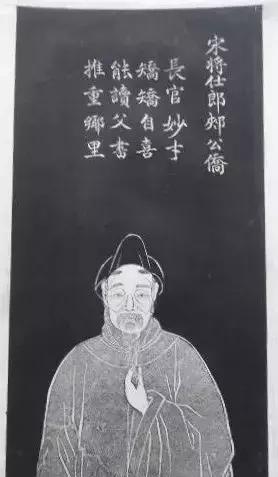 宋將仕郎郟公僑
長官妙才
矯矯自喜
能讀父書
推重鄉里